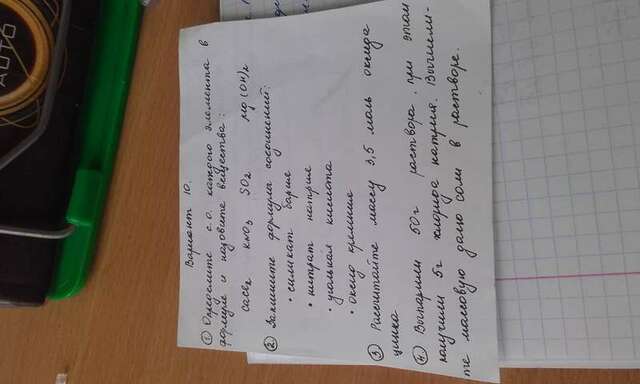 AUTO
Вариант 10.
① Определите с.о. каждого элемента в
формуле и назовите вещества:
CaCl₂ KNO₃ SO₂ Mg(OH)₂
② Запишите формулы соединений:
• силикат бария
• нитрат натрия
• угольная кислота
• оксид кремния
③ Рассчитайте массу 3,5 моль оксида
цинка
④. Выпарили 50г раствора, при этом
получили 5г хлорида натрия. Вычисли-
те массовую долю соли в растворе.